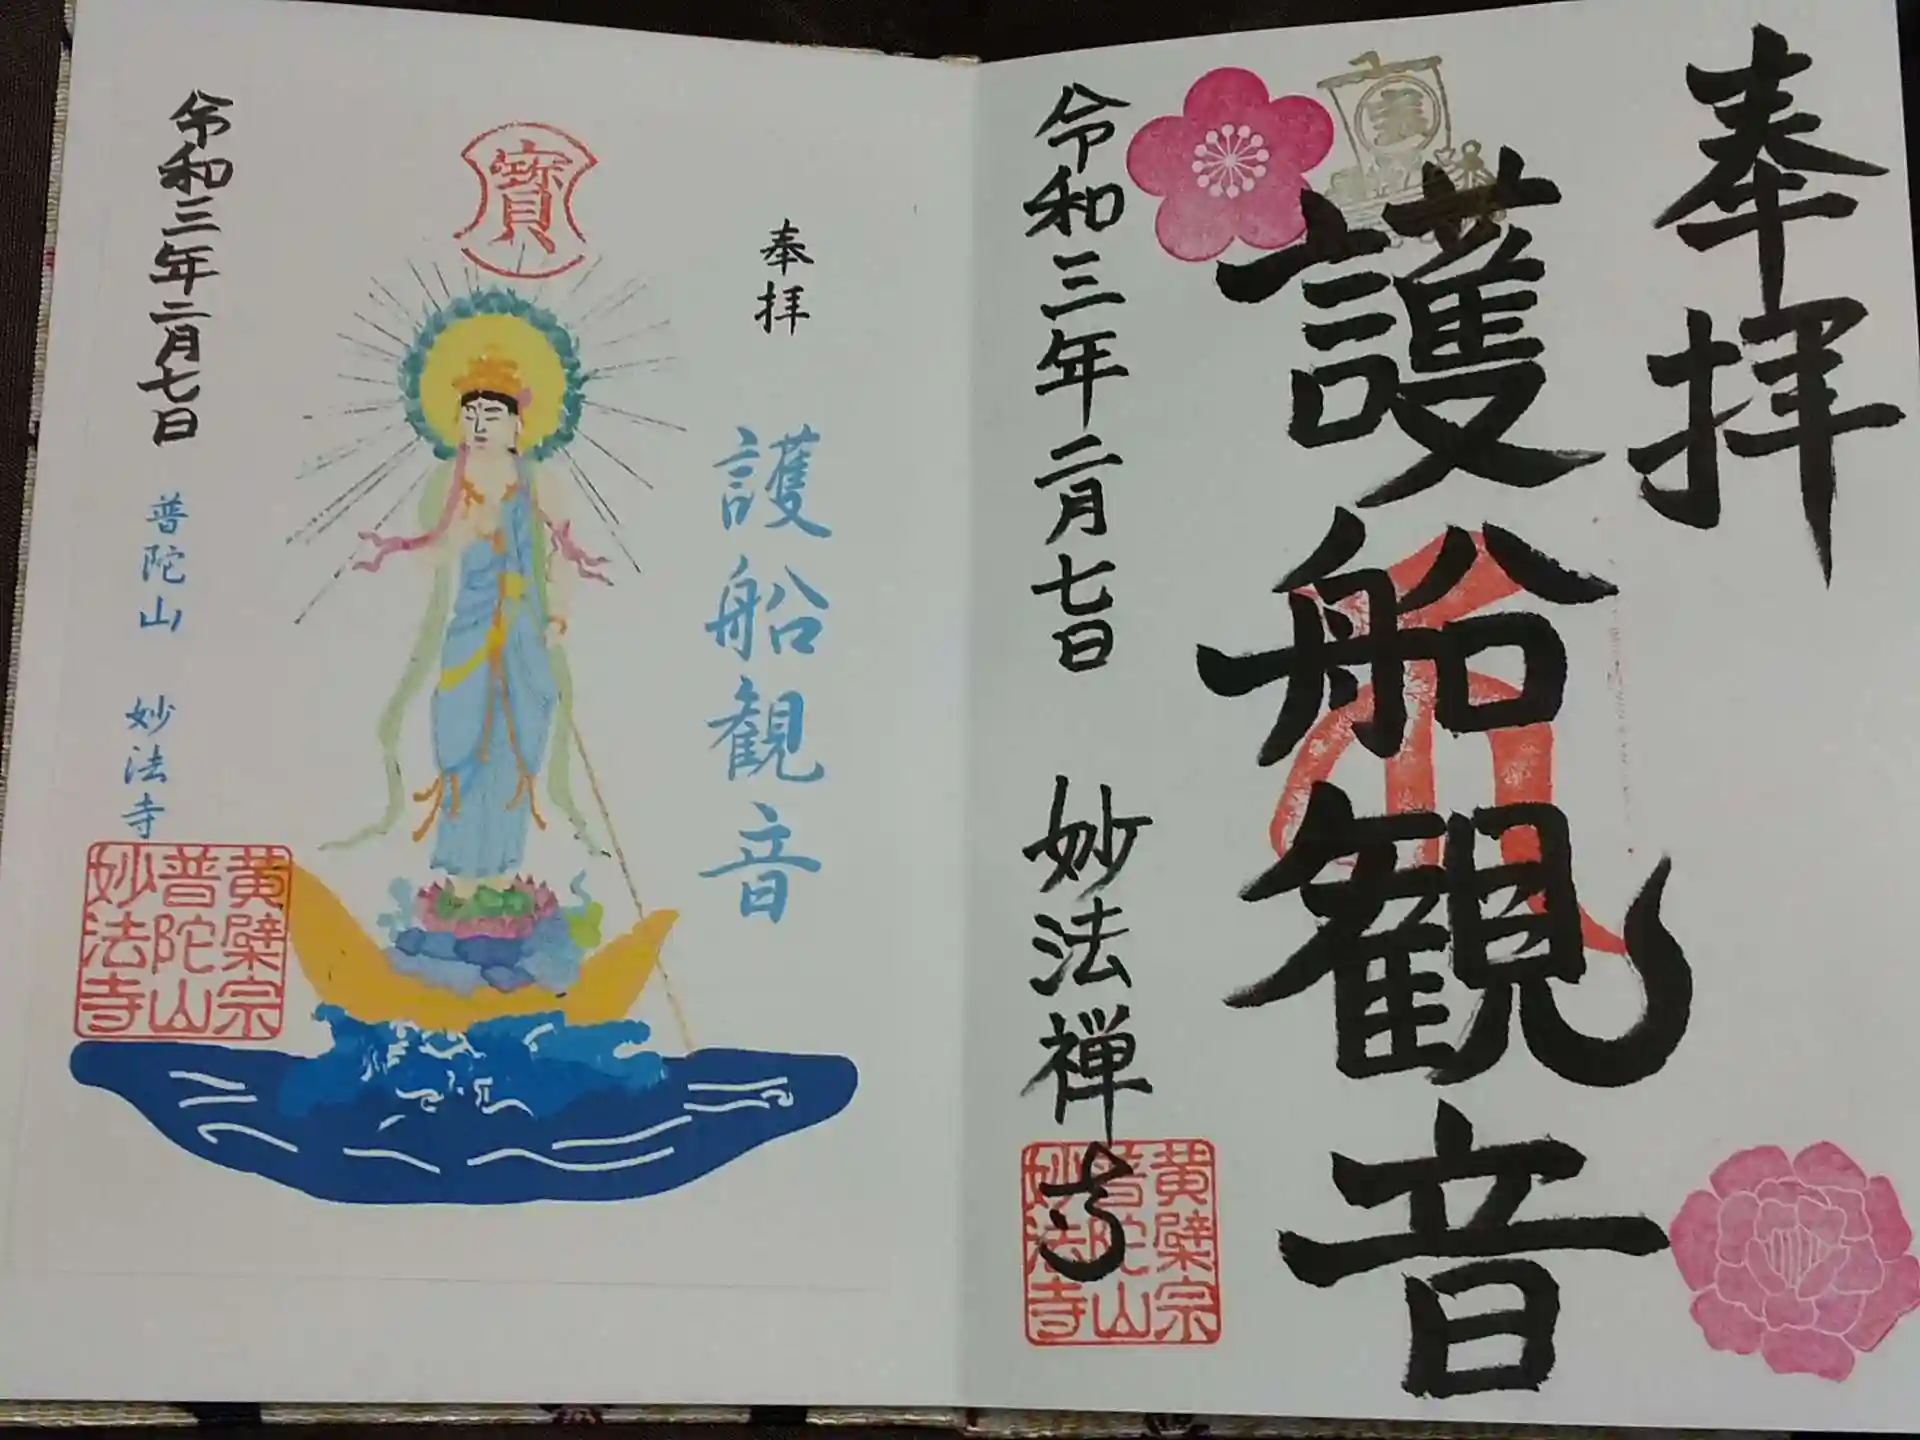 奉拝
護船観音
令和三年二月七日
妙法禅寺
黄檗宗
普陀山
妙法寺
奉拝
護船観音
寳
令和三年二月七日
普陀山 妙法寺
黄檗宗
普陀山
妙法寺